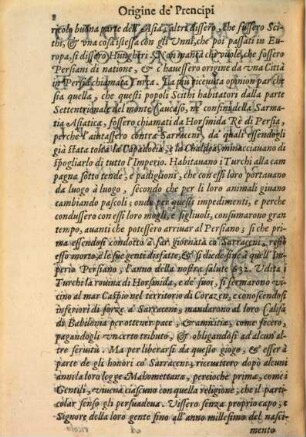 2 Origine de' Prencipi
ricolo buona parte dell'Asia, altri dissero, che fussero Sci-
thi, & vna cosa istessa con gli Vnni, che poi passati in Eu-
ropa, si dissero Hungheri. Non manca chi vuole, che fussero
Persiani di natione, & c'hauessero origine da vna Città
in Persia chiamata Turca. La più riceuuta opinion par che
sia quella, che questi popoli Scithi habitatori dalla parte
Settentrionale del monte Caucaso, ne' confini della Sarma-
tia Asiatica, fossero chiamati da Horsimida Rè di Persia,
perche l'aiutassero contra Sarraceni, da' quali essendogli
già stata tolta la & la Chaldea, minacciauano di
spogliarlo di tutto l'Imperio. Habitauano i Turchi alla cam
pagna sotto tende, e padiglioni, che con essi loro portauano
da luogo à luogo, secondo che per li loro animali giuano
cambiando pascoli; onde per questi impedimenti, e perche
condussero con essi loro mogli, e figliuoli, consumarono gran
tempo, auanti che potessero arriuar al Persiano; si che pri-
ma essendosi condotto à far giornata co' Sarraceni, restò
esso morto, e le sue genti disfatte, & si diede fine à quell'Im
perio Persiano, l'anno della nostra salute 632. Vdita i
Turchi la rouina di Horsimida, e de' suoi, si fermarono vici-
no al mar Caspio nel territorio di Corazen, e conoscendosi
inferiori di forze à Sarraceni, mandarono al loro Califa
di Babilonia per ottener pace, & amicitia, come fecero,
pagandogli vn certo tributo, & obligandosi ad alcun'al-
tro seruitù. Ma per liberarsi da questo giogo, & esser à
parte de gli honori co' Sarraceni, riceuettero dopo alcuni
anni la loro legge Mahomettana, percioche prima, come i
Gentili, viueua ciascuno con quella religione, che il parti-
colar senso gli persuadeua. Vissero senza proprio capo, e
Signore della loro gente fino all'anno millesimo del nasci-
mento